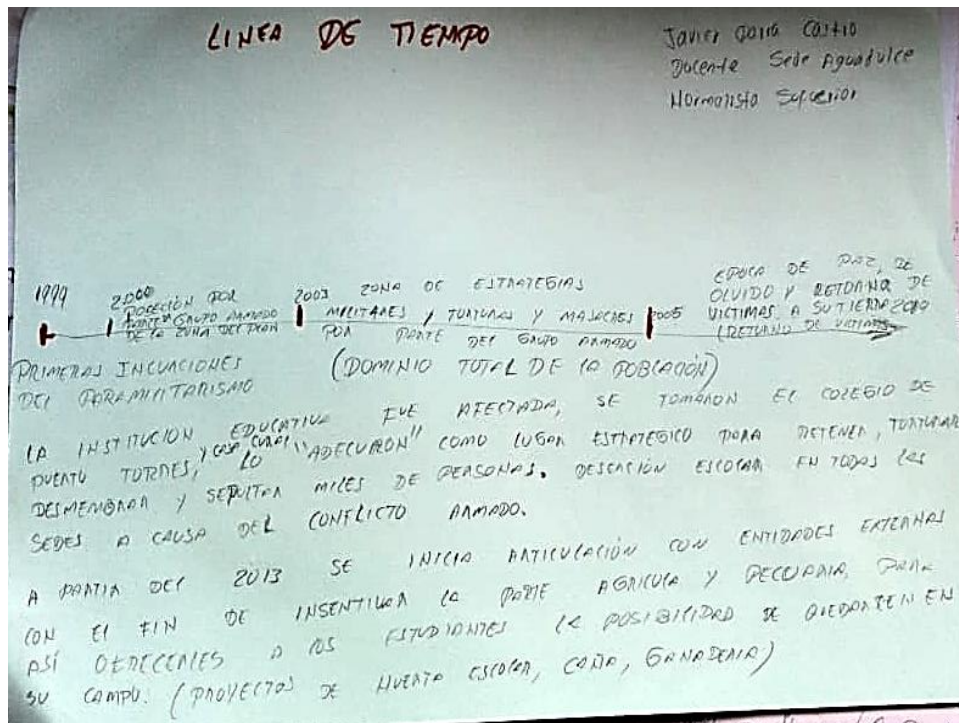 LINEA DE TIEMPO
Javier Castro
Docente Sede Aguadulce
Normalista Superior
1999
2000
POSECIÓN POR
PARTE DE GRUPO ARMADO
DE LA ZONA DEL
2003 ZONA DE ESTRATEGIAS
MILITARES, TORTURAS Y MASACRES
POR PARTE DEL GRUPO ARMADO
(DOMINIO TOTAL DE LA POBLACIÓN)
2005
EPOCA DE PAZ, DE
OLVIDO Y RETORNO DE
VICTIMAS A SU TIERRA 2009
(RETORNO DE VICTIMAS
PRIMERAS INCURCIONES
DEL PARAMILITARISMO
LA INSTITUCION EDUCATIVA FUE AFECTADA, SE TOMARON EL COLEGIO DE
PUERTO TORRES, Y CASA CURAL LO "ADECUARON" COMO LUGAR ESTRATEGICO PARA DETENER, TORTURAR
DESMEMBRAR Y SEPULTAR MILES DE PERSONAS. DESERCIÓN ESCOLAR EN TODAS LAS
SEDES A CAUSA DEL CONFLICTO ARMADO.
A PARTIR DEL 2013 SE INICIA ARTICULACIÓN CON ENTIDADES EXTERNAS
CON EL FIN DE INSENTIVAR LA PARTE AGRICOLA Y PECUARIA, PARA
ASÍ OFRECERLES A LOS ESTUDIANTES LA POSIBILIDAD DE QUEDARSEN EN
SU CAMPO. (PROYECTOS DE HUERTA ESCOLAR, CAÑA, GANADERIA)